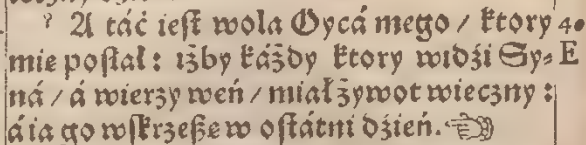 ² A táć ieſt wola Oycá mego / ktory 40
mie poſłał : iżby káżdy ktory widźi Sy⸗ E
ná / á wierzy weń / miał żywot wieczny :
á ia go wſkrzeßę w oſtátni dźień. ☜